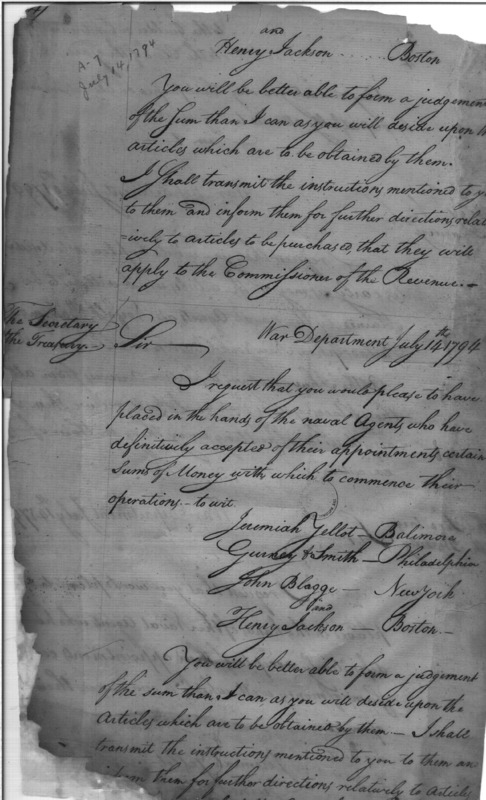 A-7
July 14, 1794
and
Henry Jackson .... Boston
You will be better able to form a judgement
of the Sum than I can as you will deside upon
articles which are to be obtained by them.
I Shall transmit the instructions mentioned to yo
to them and inform them for further directions relat
=ively to articles to be purchased, that they will
apply to the Commissioner of the Revenue.
War Department July 14th 1794
The Secretary
the Treasury.
Sir
I request that you would please to have
placed in the hands of the naval Agents who have
definitively accepted of their appointments, certain
Sums of Money with which to commence their
operations - to wit.
Jeremiah Yellot - Balimora
Gurney & Smith - Philadelphia
John Blagge - New York
and
Henry Jackson - Boston.
You will be better able to form a judgement
of the sum than I can as you will deside upon the
Articles which are to be obtained by them - I shall
transmit the instructions mentioned to you to them an
inform them for further directions relatively to Articles